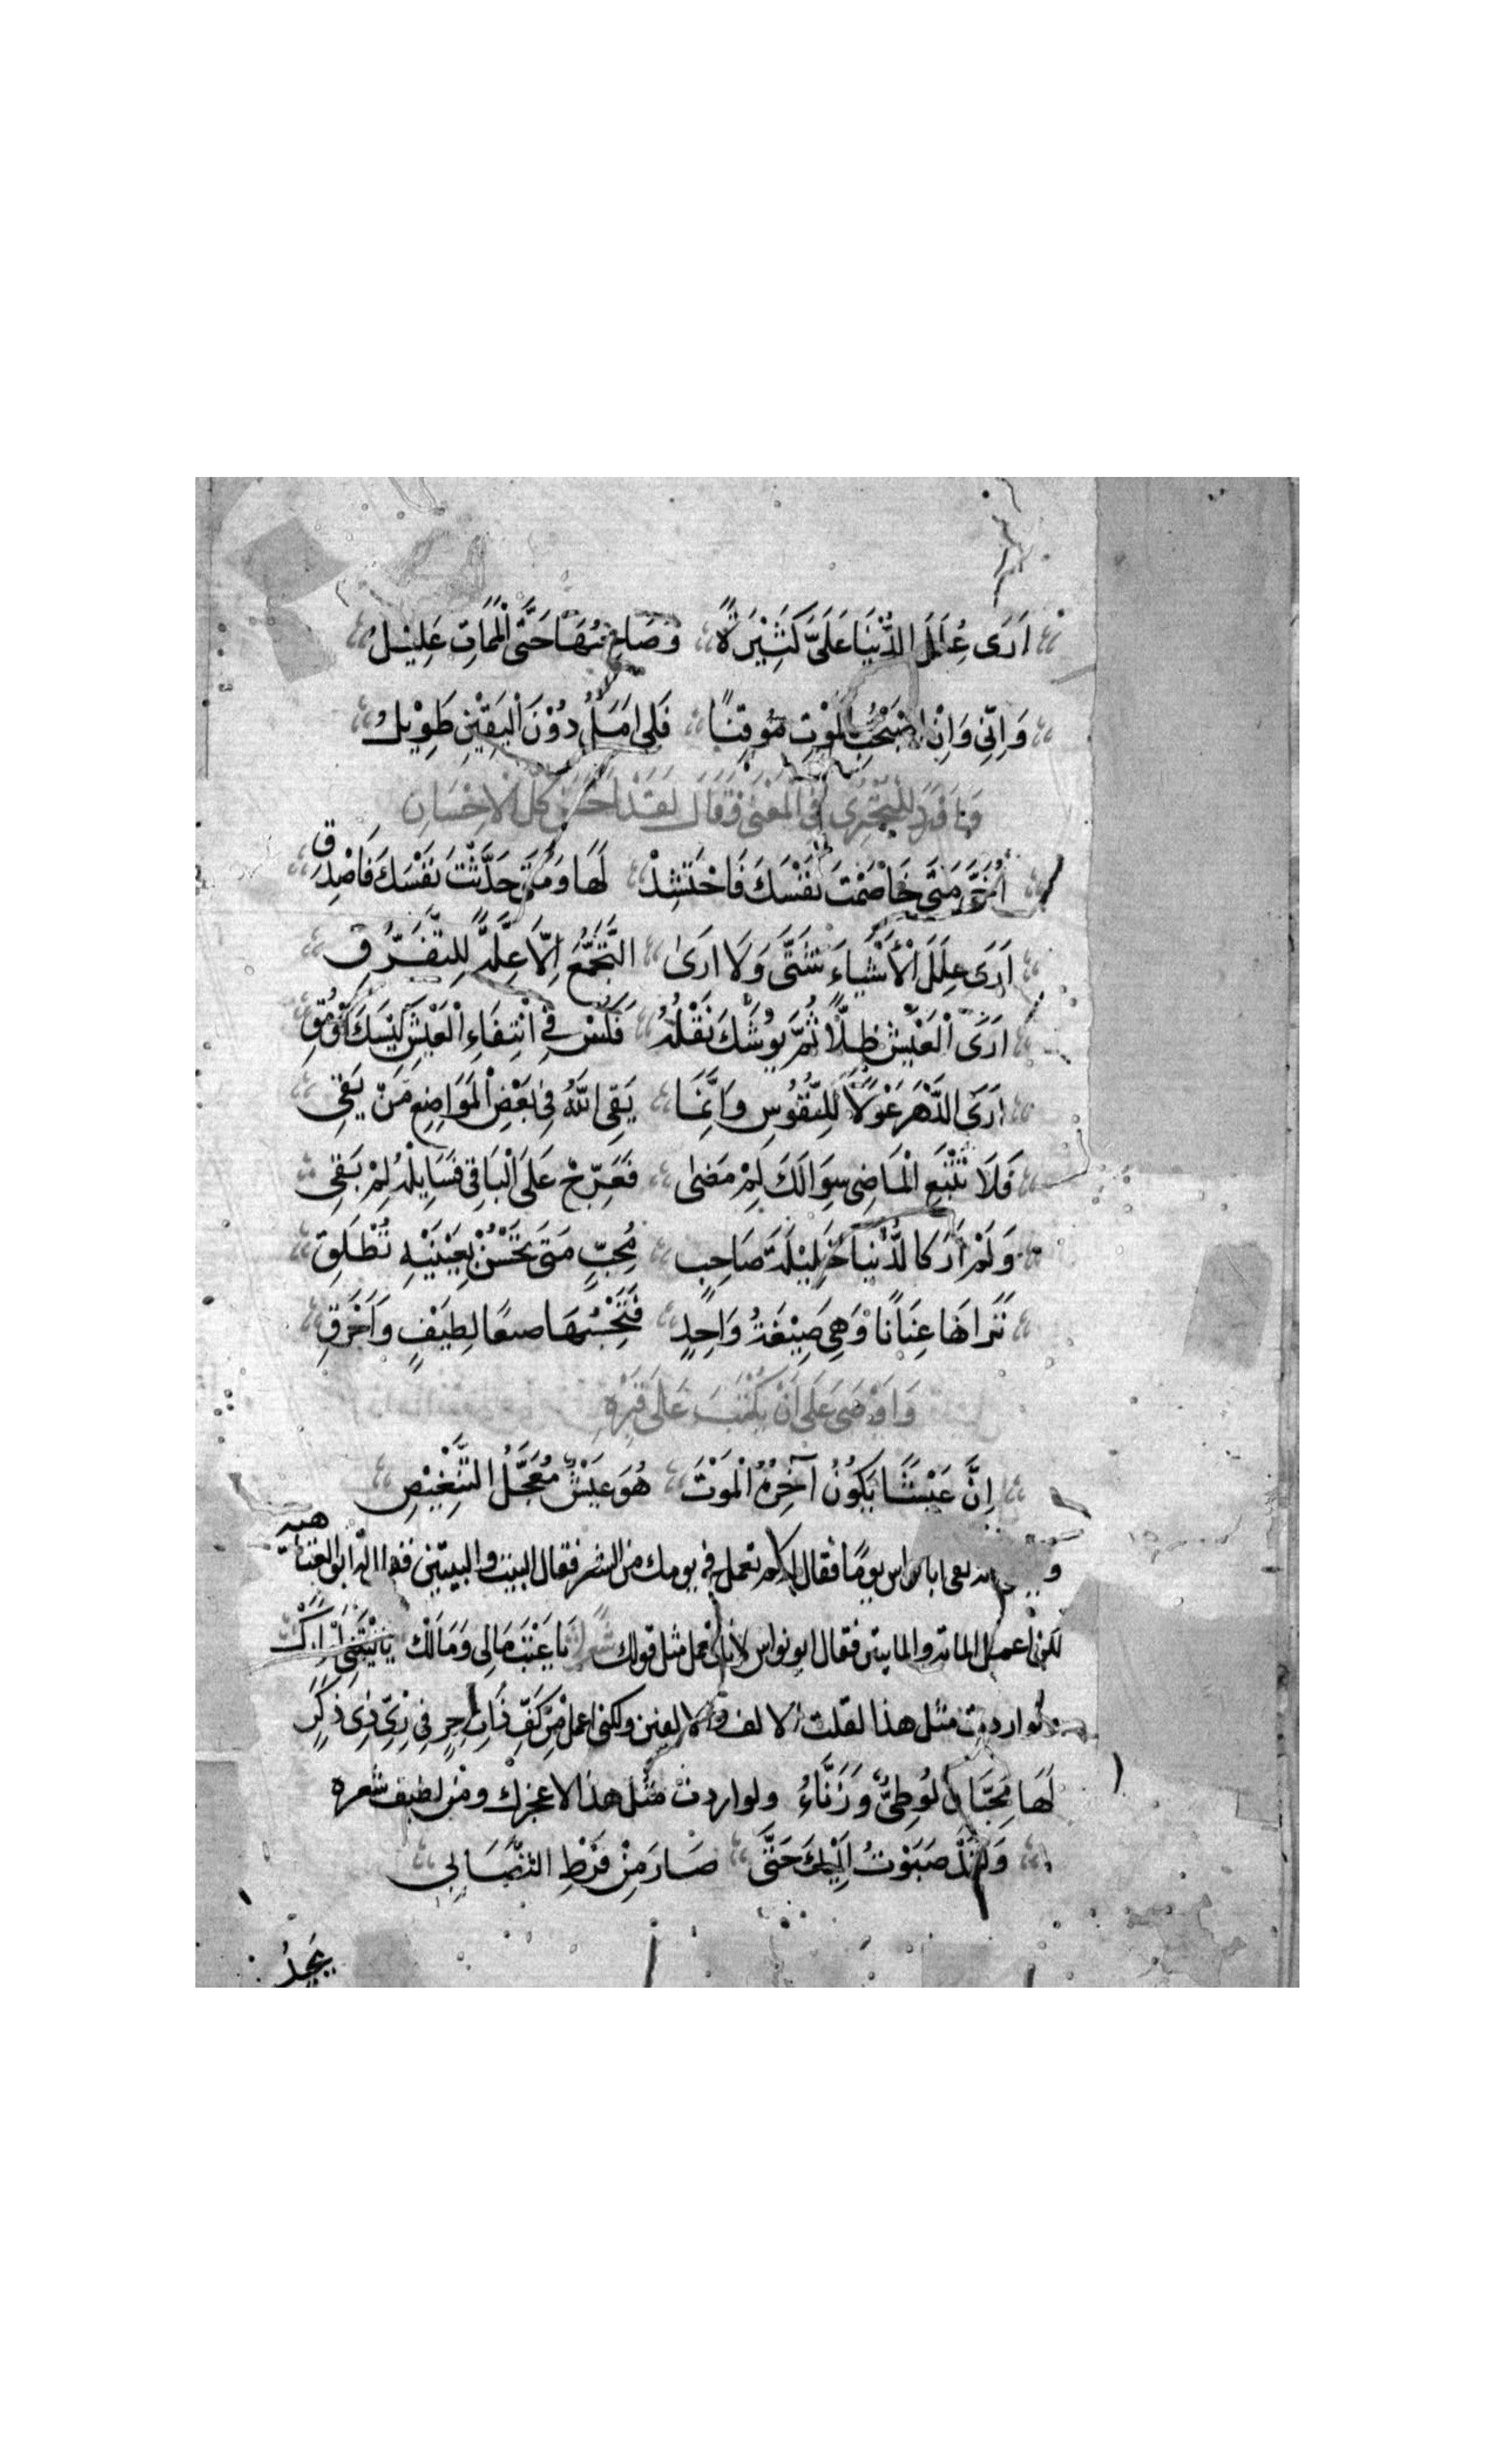 اَرَى عِلَلَ الدُّنْيَا عَلَىَّ كَثِيْرَةً وَصَاحِبُهَا حَتَّى الْمَمَاتِ عَلِيْلُ
وَاِنِّي وَاِنْ اَصْبَحْتُ بِالْمَوْتِ مُوقِنًا فَلِي اَمَلٌ دُوْنَ الْيَقِيْنِ طَوِيْلُ
لِلْبُحْتَرِى فِى الْمَعْنٰى فَقَالَ لَقَدْ اَحْسَنَ كُلَّ الْاِحْسَانِ
اُخَىَّ مَتٰى خَاصَمْتَ نَفْسَكَ فَاحْتَشِدْ لَهَا وَمَتٰى حَدَّثْتَ نَفْسَكَ فَاصْدُقِ
اَرَى عِلَلَ الْاَشْيَاءِ شَتّٰى وَلَا اَرٰى التَّجَمُّعَ اِلَّا عِلَّةً لِلتَّفَرُّقِ
اَرَى الْعَيْشَ ظِلًّا ثُمَّ يُوشِكُ نَقْلُهُ فَكِسْ فِي ابْتِغَاءِ الْعَيْشِ كَيْسَكَ اَوْ مُقِ
اَرَى الدَّهْرَ غَوْلًا لِلنُّفُوسِ وَاِنَّمَا يَقِى اللّٰهُ فِى بَعْضِ الْمَوَاضِعِ مَنْ يَقِى
فَلَا تُتْبِعِ الْمَاضِى سِوَالَكَ لِمْ مَضٰى فَعَرِّجْ عَلَى الْبَاقِى فَسَايِلْهُ لِمْ بَقِى
وَلَمْ اَرَ كَالدُّنْيَا حَلِيْلَةَ صَاحِبٍ مُحِبٍّ مَتٰى تَحْسُنْ بِعَيْنَيْهِ تُطْلَقِ
تَرَاهَا عِيَانًا وَهِىَ صِيْغَةُ وَاحِدٍ فَتَحْسِبُهَا صنعا لِطَيْفٍ وَاَخْرَقِ
وَاَوْصٰى عَلَى اَنْ يُكْتَبَ عَلٰى قَبْرِهِ
اِنَّ عَيْشًا يَكُوْنُ آخِرَهُ الْمَوْتُ هُوَ عَيْشٌ مُعَجَّلُ التَّنْغِيْصِ
ابا نواس يومًا فقال له كم تعمل فى يومك من الشعر فقال البيت والبيتين فقال له ابو العتاهيه
لكنى اعمل الماتة والمايتين فقال ابو نواس لانك تعمل مثل قولك يَا عَتَبُ مَالِى وَمَالَكْ يَالَيْتَنِى لَمْ اَرَكْ
ولو اردت مثل هذا لقلت الالف والالفين ولكنى اعمل مِنْ كَفِّ ذَاتِ حِرٍ فِى زِىِّ ذِى ذَكَرٍ
لَهَا مُحِبَّانِ لُوطِىٌّ وَزَنَّاءُ ولو اردت مثل هذا لاعجزك ومن لطيف شعره
وَلَقَدْ صَبَوْتُ اِلَيْكَ حَتّٰى صَارَ مِنْ فَرْطِ التَّصَابِى
يَجِدُ